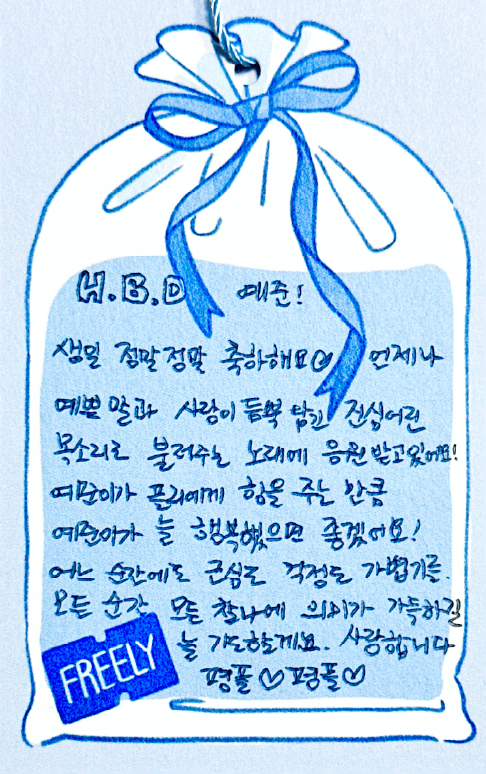 H.B.D 예준!
생일 정말정말 축하해요♡ 언제나
예쁜 말과 사랑이 듬뿍 담긴 진심어린
목소리로 불러주는 노래에 응원받고있어요!
예준이가 플리에게 힘을 주는 만큼
예준이가 늘 행복했으면 좋겠어요!
어느 순간에도 근심도 걱정도 가볍기를.
모든 순간 모든 찰나에 의미가 가득하길
늘 기도할게요. 사랑합니다
평플♡평플♡
FREELY